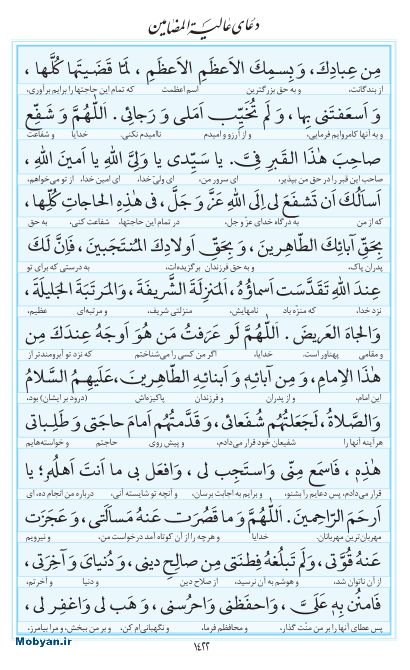 دعای عالیة المضامین
مِن عِبادِكَ، وَ بِسمِكَ الاَعظَمِ الاَعظَمِ، لَمّا قَضَيتَها كُلَّها،
از بندگانت، و به حق بزرگترین اسم اعظمت که تمام این حاجتها را برایم برآوری،
وَ اَسعَفتَنی بِها، وَ لَم تُخَيِّب اَمَلی وَ رَجائی. اَللّٰهُمَّ وَ شَفِّع
و به آنها کامروایم فرمایی، و از آرزو و امیدم ناامیدم نکنی. خدایا و شفاعت
صاحِبَ هٰذَا القَبرِ فِیَّ. يا سَيِّدی يا وَلِیَّ اللّٰهِ يا اَمينَ اللّٰهِ،
صاحب این قبر را در حق من بپذیر. ای سرور من، ای ولیّ خدا، ای امین خدا، از تو می‌خواهم،
اَسأَلُكَ اَن تَشفَعَ لی اِلَی اللّٰهِ عَزَّ وَ جَلَّ، فی هٰذِهِ الحاجاتِ كُلِّها،
که از من به درگاه خدای عزّ و جل، در تمام این حاجتها، شفاعت کنی، به حق
بِحَقِّ آبائِكَ الطّاهِرينَ، وَ بِحَقِّ اَولادِكَ المُنتَجَبينَ، فَاِنَّ لَكَ
پدران پاک، و به حق فرزندان برگزیده‌ات، به درستی که برای تو
عِندَ اللّٰهِ تَقَدَّسَت اَسماؤُهُ، المَنزِلَةَ الشَّريفَةَ، وَالمَرتَبَةَ الجَليلَةَ،
نزد خدا، که منزّه باد نامهایش، منزلتی شریف، و مرتبه‌ای عظیم،
وَالجاهَ العَريضَ. اَللّٰهُمَّ لَو عَرَفتُ مَن هُوَ اَوجَهُ عِندَكَ مِن
و مقامی پهناور است. خدایا، اگر من کسی را می‌شناختم که نزد تو آبرومندتر از
هٰذَا الاِمامِ، وَ مِن آبائِهِ وَ اَبنائِهِ الطّاهِرينَ، عَلَيهِمُ السَّلامُ
این امام، و از پدران و فرزندان پاکیزه‌اش (درود بر ایشان) بود،
وَالصَّلاةُ، لَجَعَلتُهُم شُفَعائی، وَ قَدَّمتُهُم اَمامَ حاجَتی وَ طَلِباتی
هر آینه آنها را شفیعان خود قرار می‌دادم، و پیش روی حاجتم و خواسته‌هایم
هٰذِهِ، فَاسمَع مِنّی وَاستَجِب لی، وَافعَل بی ما اَنتَ اَهلُهُ؛ يا
قرار می‌دادم، پس دعایم را بشنو، و برایم به اجابت برسان، و آنچه تو شایسته آنی، درباره من انجام ده، ای
اَرحَمَ الرّاحِمينَ. اَللّٰهُمَّ وَ ما قَصُرَت عَنهُ مَسأَلَتی، وَ عَجَزَت
مهربان‌ترین مهربانان. خدایا و هرچه را از آن کوتاه آمد درخواست من، و نیرویم
عَنهُ قُوَّتی، وَ لَم تَبلُغهُ فِطنَتی مِن صالِحِ دينی، وَ دُنيایَ وَ آخِرَتی،
از آن ناتوان شد، و هوشم به آن نرسید، از صلاح دین و دنیا و آخرتم،
فَامنُن بِهِ عَلَیَّ، وَاحفَظنی وَاحرُسنی، وَ هَب لی وَاغفِر لی،
پس عطای آنها را بر من منّت گذار، و محافظم فرما، و نگهبانی‌ام کن، و بر من ببخش، و مرا بیامرز.
۱۴۲۲
Mobyan.ir